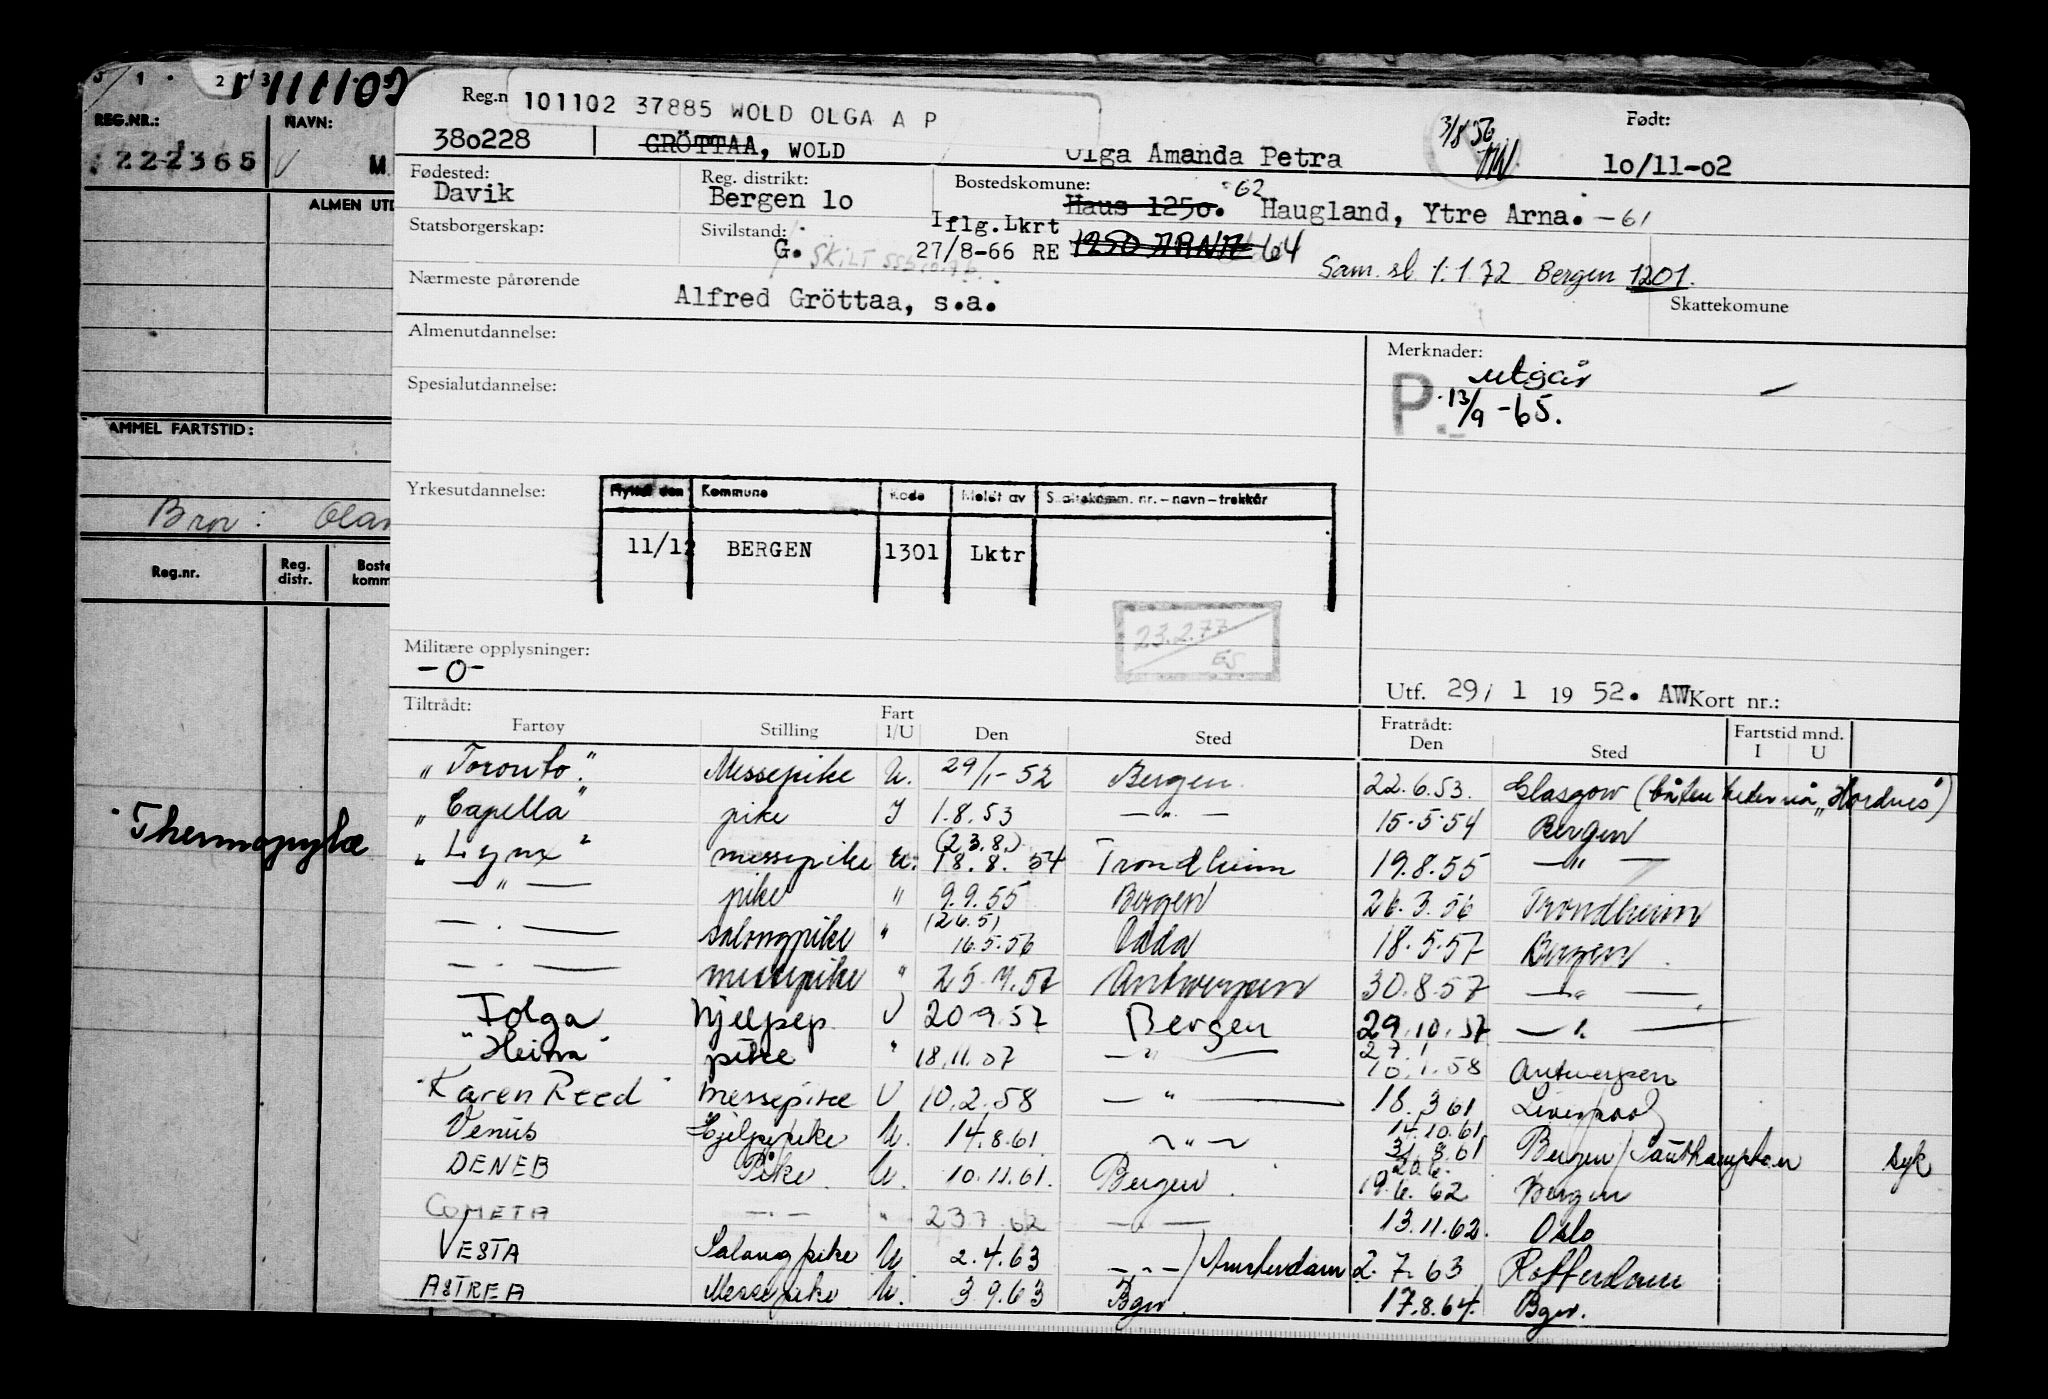 5/1. 2 3
101102
REG.NR.: NAVN:
222365 V M
ALMEN UTD
AMMEL FARTSTID:
Bror: Olav
Reg.nr. Reg. distr. Boste komm
Thermopylæ
Reg.n 101102 37885 WOLD OLGA A P
380228 GRÖTTAA, WOLD Olga Amanda Petra 3/8 56 Født: 10/11-02
Fødested: Davik Reg. distrikt: Bergen 10 Bostedskomune: Haus 1250. 62 Haugland, Ytre Arna. -61
Statsborgerskap: Sivilstand: G. SKILT Iflg.Lkrt 27/8-66 RE 1250 ARNA 64
Sam. sl 1.1 72 Bergen 1201.
Nærmeste pårørende Alfred Gröttaa, s.a. Skattekomune
Almenutdannelse: Merknader:
P. utgår 13/9-65.
Spesialutdannelse:
Yrkesutdannelse:
Flyttet den Kommune Kode Meldt av Skattekomm. nr. – navn – trekkår
11/12 BERGEN 1301 Lktr
23.2.77 ES
Militære opplysninger:
-0-
Utf. 29/ 1 1952. AW Kort nr.:
Tiltrådt: Fratrådt: Fartstid mnd.
Fartøy Stilling Fart I/U Den Sted Den Sted I U
"Toronto." Messepike U. 29/1-52 Bergen. 22.6.53. Glasgow (båten heder nå "Hordnes")
"Capella" pike I 1.8.53 — " — 15.5.54 Bergen
"Lynx" messepike U. (23.8.) 18.8.54 Trondheim 19.8.55 — " —
— " — pike " 9.9.55 Bergen 26.3.56 Trondheim
— " — salongpike " (26.5) 16.5.56 Odda 18.5.57 Bergen.
— " — messepike " 25.7.57 Antwerpen 30.8.57 — " —
Tolga hjelpep. U 20.9.57 Bergen 29.10.57 — " —
"Heina" pike " 18.11.57 — " — 27.1 10.1.58 Antwerpen
"Karen Reed" Messepike U 10.2.58 — " — 18.3 61 Liverpool
Venus Hjelpepike U. 14.8.61. — " — 14.10.61 31.8.61 Bergen/Southampton syk
DENEB Pike. U. 10.11.61. Bergen. 20.6. 19.6.62 Bergen
COMETA — " — " 23 7.62 — " — 13.11.62. Oslo
VESTA Salongpike U 2.4.63 — " — / Amsterdam 2.7.63 Rotterdam
ASTREA Messepike U. 3 9.63 Bgn. 17.8.64. Bgn.